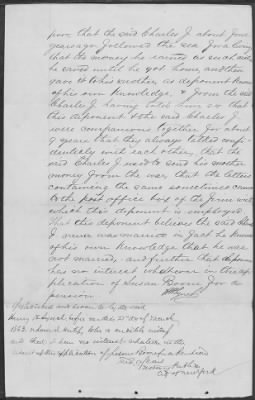 pose, that the said Charles J about four
years ago followed the sea for a living
that the money he earned as such
he saved until he got home, and then
gave to his mother, as deponent knows
of his own knowledge, & from the said
Charles J having told him so that
this deponent & the said Charles J
were companions together for about
9 years that they always talked confi
dentially with each other, that the
said Charles J used to send his mother
money from the war, that the letters
containing the same sometimes came
to the post office box of the firm with
which this deponent is employed
That this deponent believes the said Charles
J never was married in fact he knows
of his own knowledge that he was
not married, and further that deponent
has no interest whatever in the ap
plication of Susan Boone for a
pension
Subscribed and sworn to by the said
before me this day of March
1863, whom I certify to be a credible
and that I have no interest whatever in the
application of Susan Boone for a Pension
Notary Public
City of New York